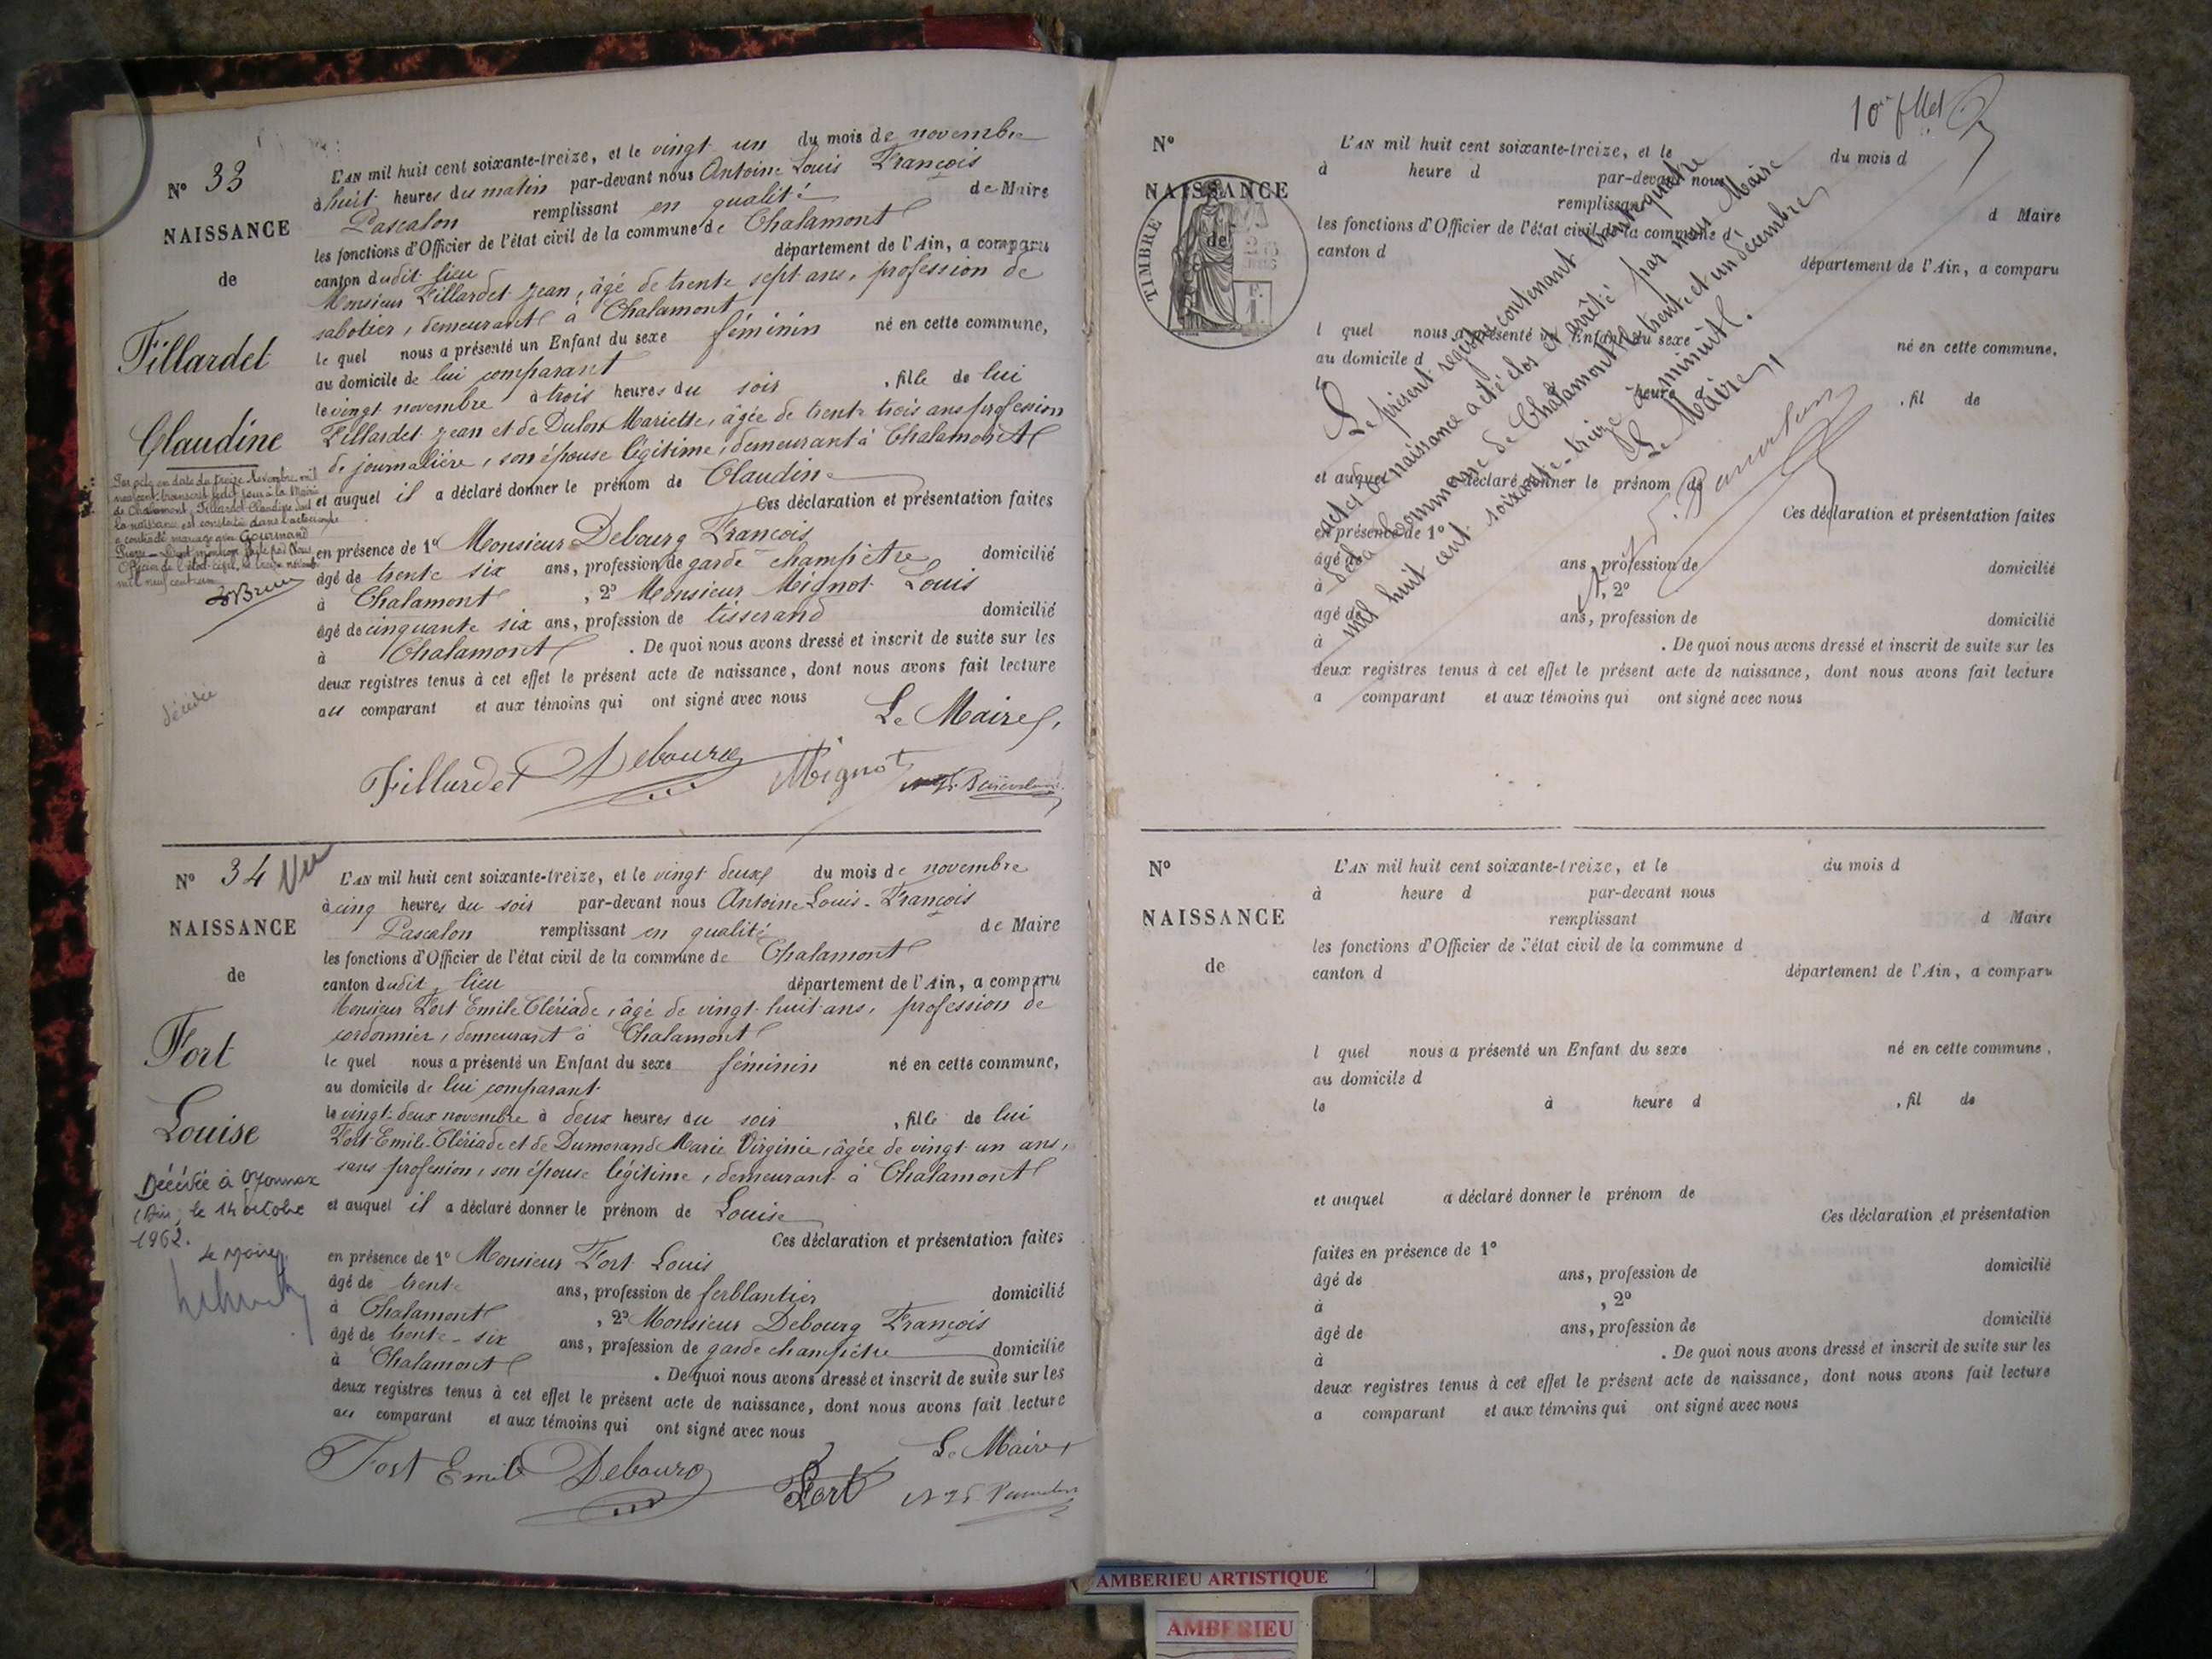 N° 33
NAISSANCE
de
Fillardet
Claudine
Par acte en date du treize Novembre mil
neuf cent transcrit ledit jour à la Mairie
de Chalamont, Fillardet Claudine dont
la naissance est constatée dans l'acte
a contracté mariage avec Gourmand
Pierre
Officier de l'état civil, le treize novembre
mil neuf cent un
décédée
L'AN mil huit cent soixante-treize, et le vingt un du mois de novembre
à huit heures du matin par-devant nous Antoine Louis François
Pascalon remplissant en qualité de Maire
les fonctions d'Officier de l'état civil de la commune de Chalamont
canton dudit lieu département de l'Ain, a comparu
Monsieur Fillardet Jean, âgé de trente sept ans, profession de
sabotier, demeurant à Chalamont
le quel nous a présenté un Enfant du sexe féminin né en cette commune,
au domicile de lui comparant
le vingt novembre à trois heures du soir, fille de lui
Fillardet Jean et de Dulon Mariette, âgée de trente trois ans profession
de journalière, son épouse légitime, demeurant à Chalamont
et auquel il a déclaré donner le prénom de Claudine
Ces déclaration et présentation faites
en présence de 1° Monsieur Debourg François
âgé de trente six ans, profession de garde champêtre domicilié
à Chalamont, 2° Monsieur Mignot Louis
âgé de cinquante six ans, profession de tisserand domicilié
à Chalamont. De quoi nous avons dressé et inscrit de suite sur les
deux registres tenus à cet effet le présent acte de naissance, dont nous avons fait lecture
au comparant et aux témoins qui ont signé avec nous
Le Maire,
Fillardet Debourg Mignot
N° 34 Vu
NAISSANCE
de
Fort
Louise
Décédée à Oyonnax
(Ain) le 14 octobre
1962.
Le Maire
L'AN mil huit cent soixante-treize, et le vingt deux du mois de novembre
à cinq heures du soir par-devant nous Antoine Louis François
Pascalon remplissant en qualité de Maire
les fonctions d'Officier de l'état civil de la commune de Chalamont
canton dudit lieu département de l'Ain, a comparu
Monsieur Fort Emile Clériade, âgé de vingt huit ans, profession de
cordonnier, demeurant à Chalamont
le quel nous a présenté un Enfant du sexe féminin né en cette commune,
au domicile de lui comparant
le vingt-deux novembre à deux heures du soir, fille de lui
Fort Emile Clériade et de Dumorand Marie Virginie, âgée de vingt un ans,
sans profession, son épouse légitime, demeurant à Chalamont
et auquel il a déclaré donner le prénom de Louise
Ces déclaration et présentation faites
en présence de 1° Monsieur Fort Louis
âgé de trente ans, profession de ferblantier domicilié
à Chalamont, 2° Monsieur Debourg François
âgé de trente-six ans, profession de garde champêtre domicilié
à Chalamont. De quoi nous avons dressé et inscrit de suite sur les
deux registres tenus à cet effet le présent acte de naissance, dont nous avons fait lecture
au comparant et aux témoins qui ont signé avec nous
Le Maire
Fort Emile Debourg Fort
10e fllet
N°
NAISSANCE
de
TIMBRE
L'AN mil huit cent soixante-treize, et le du mois d
à heure d par-devant nous
remplissant d Maire
les fonctions d'Officier de l'état civil de la commune d
canton d département de l'Ain, a comparu
l quel nous a présenté un Enfant du sexe né en cette commune,
au domicile d
le à heure d, fil de
et auquel a déclaré donner le prénom de
Ces déclaration et présentation faites
en présence de 1°
âgé de ans, profession de domicilié
à, 2°
âgé de ans, profession de domicilié
à. De quoi nous avons dressé et inscrit de suite sur les
deux registres tenus à cet effet le présent acte de naissance, dont nous avons fait lecture
a comparant et aux témoins qui ont signé avec nous
Le présent registre contenant trente quatre
actes de naissance a été clos et arrêté par nous Maire
de la commune de Chalamont le trente et un décembre
mil huit cent soixante-treize à minuit.
Le Maire
N°
NAISSANCE
de
L'AN mil huit cent soixante-treize, et le du mois d
à heure d par-devant nous
remplissant d Maire
les fonctions d'Officier de l'état civil de la commune d
canton d département de l'Ain, a comparu
l quel nous a présenté un Enfant du sexe né en cette commune,
au domicile d
le à heure d, fil de
et auquel a déclaré donner le prénom de
Ces déclaration et présentation
faites en présence de 1°
âgé de ans, profession de domicilié
à, 2°
âgé de ans, profession de domicilié
à. De quoi nous avons dressé et inscrit de suite sur les
deux registres tenus à cet effet le présent acte de naissance, dont nous avons fait lecture
a comparant et aux témoins qui ont signé avec nous
AMBERIEU ARTISTIQUE
AMBERIEU